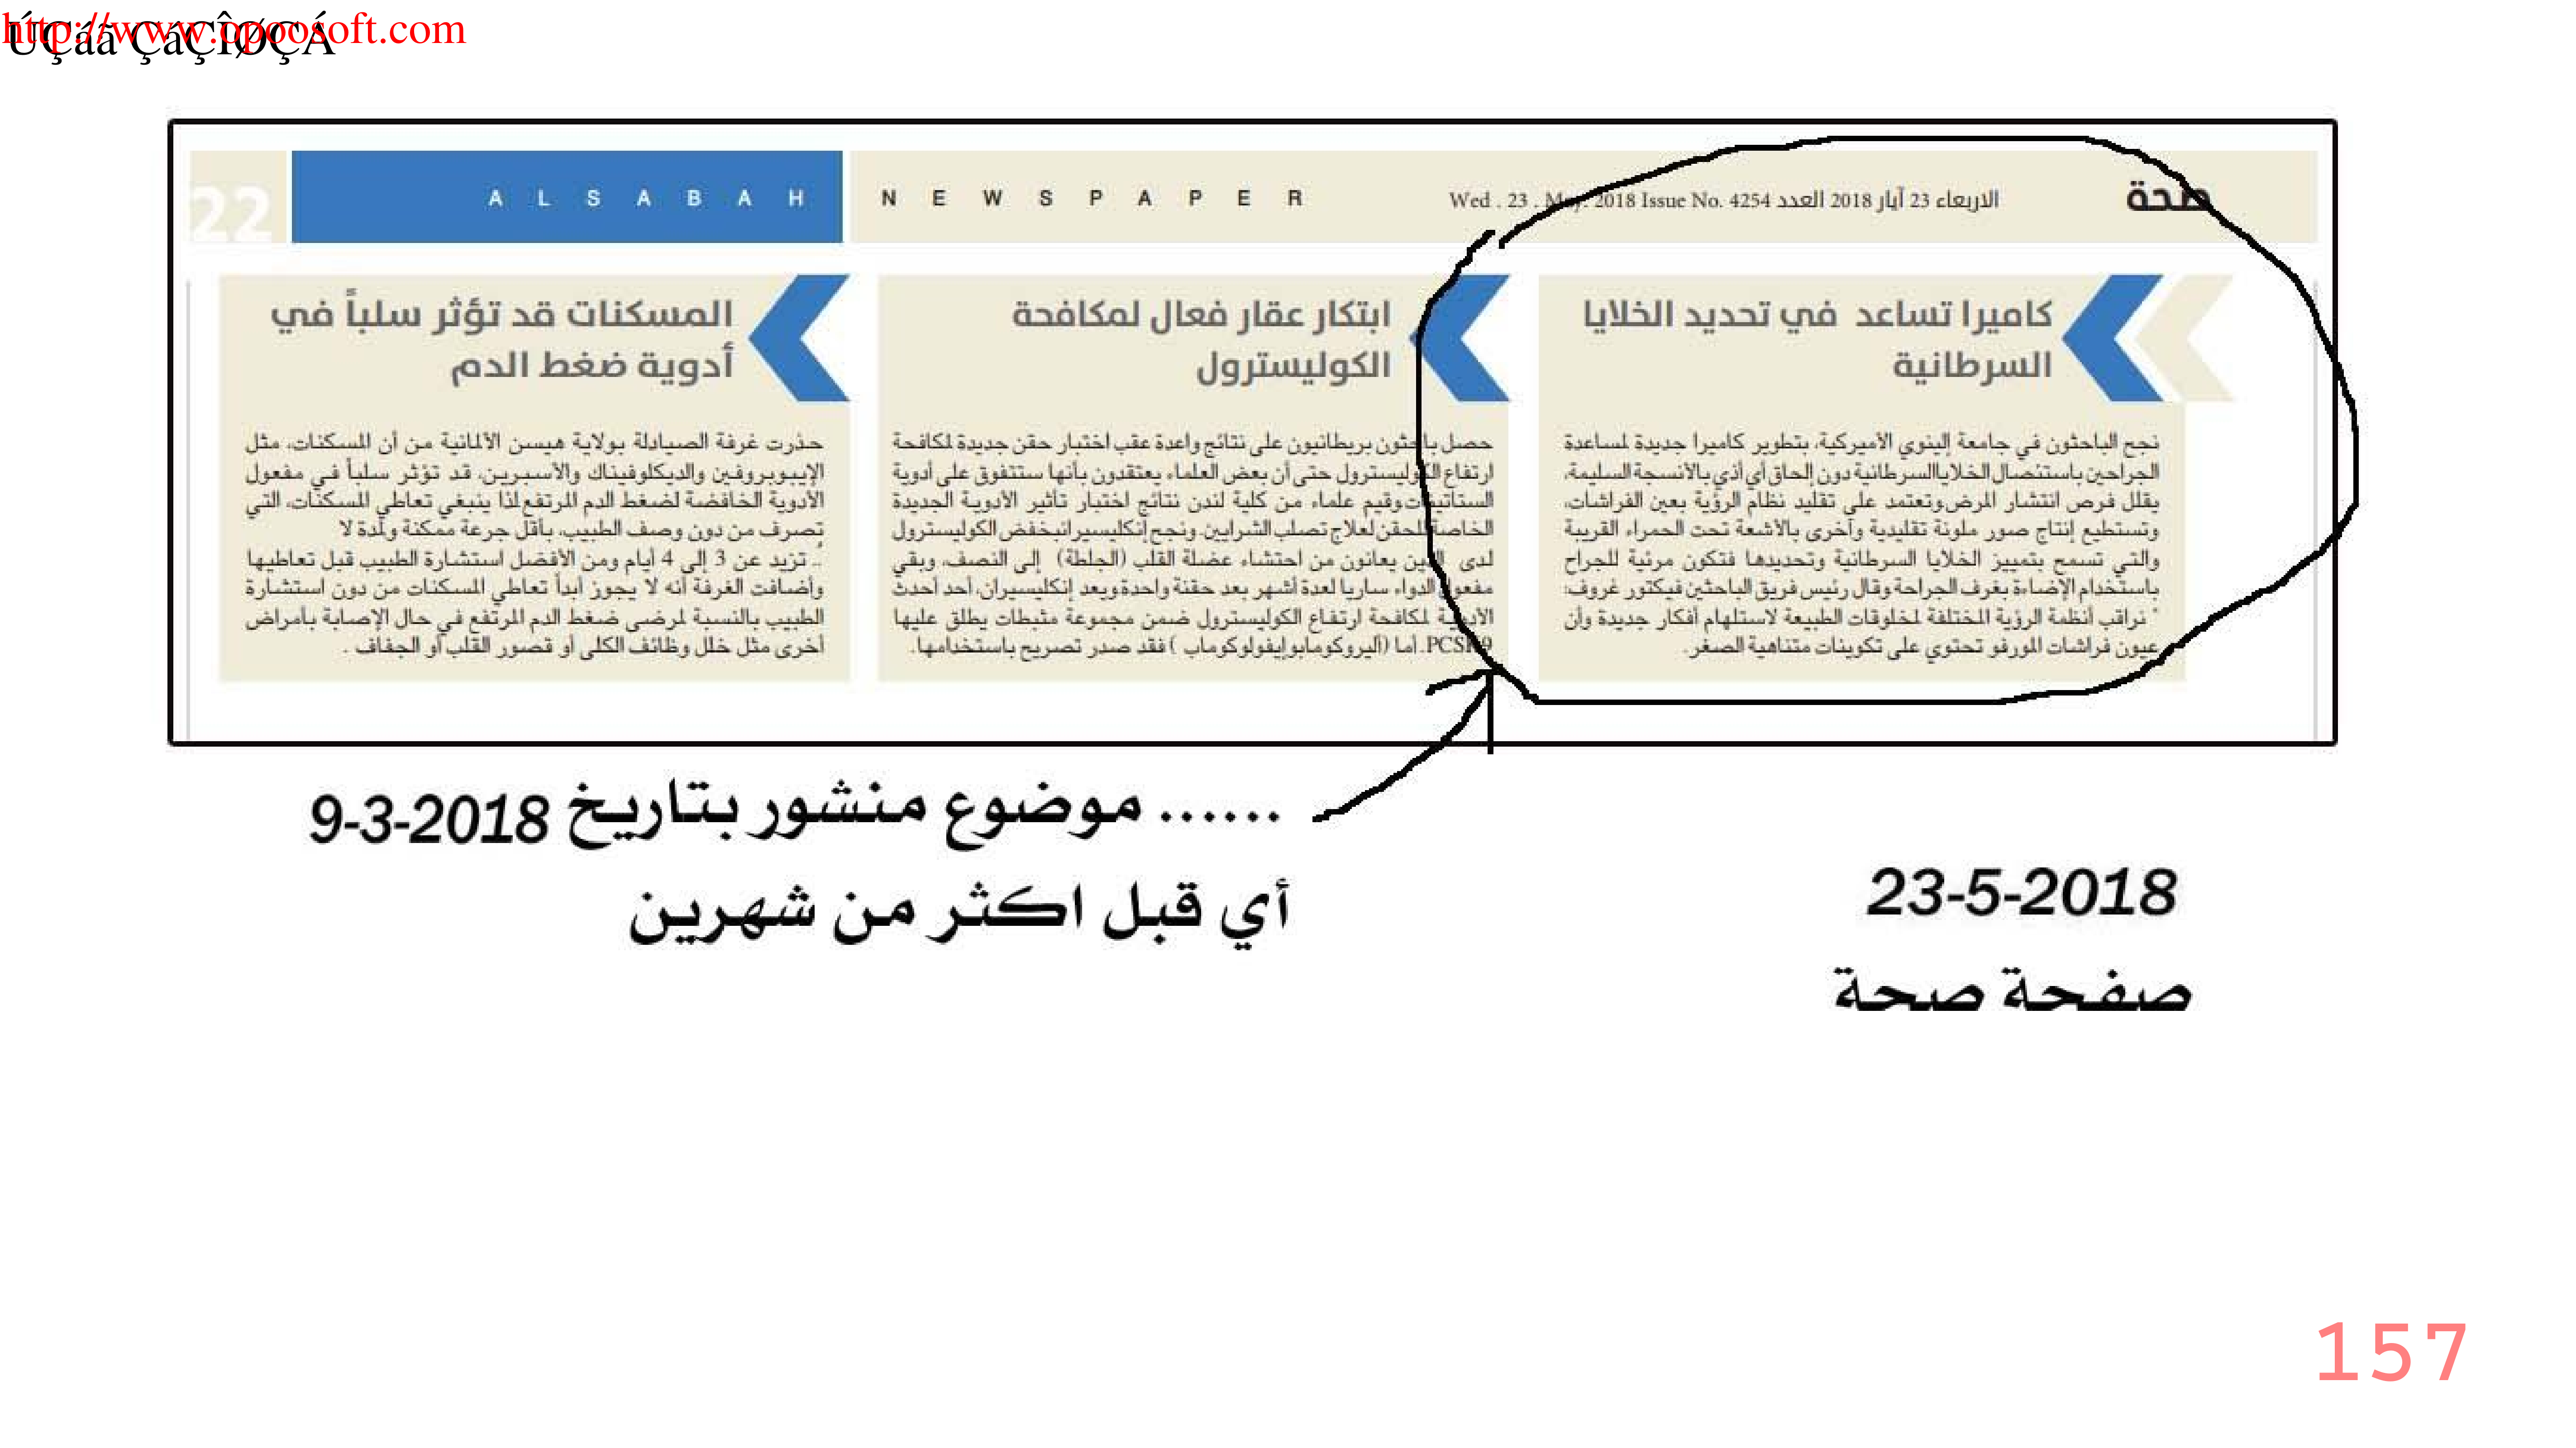 http://www.opoosoft.com
ÚÇáã ÇáÇÎØÇÁ
صحة
الاربعاء 23 آيار 2018 العدد 4254 Wed . 23 . May. 2018 Issue No.
ALSABAH NEWSPAPER
22
كاميرا تساعد في تحديد الخلايا
السرطانية
نجح الباحثون في جامعة إلينوي الأميركية، بتطوير كاميرا جديدة لمساعدة
الجراحين باستئصال الخلايا السرطانية دون إلحاق أي أذي بالأنسجة السليمة،
يقلل فرص انتشار المرض وتعتمد على تقليد نظام الرؤية بعين الفراشات،
وتستطيع إنتاج صور ملونة تقليدية وأخرى بالأشعة تحت الحمراء القريبة
والتي تسمح بتمييز الخلايا السرطانية وتحديدها فتكون مرئية للجراح
باستخدام الإضاءة بغرف الجراحة وقال رئيس فريق الباحثين فيكتور غروف:
" نراقب أنظمة الرؤية المختلفة لمخلوقات الطبيعة لاستلهام أفكار جديدة وأن
عيون فراشات المورفو تحتوي على تكوينات متناهية الصغر.
ابتكار عقار فعال لمكافحة
الكوليسترول
حصل باحثون بريطانيون على نتائج واعدة عقب اختبار حقن جديدة لمكافحة
ارتفاع الكوليسترول حتى أن بعض العلماء يعتقدون بأنها ستتفوق على أدوية
الستاتينات وقيم علماء من كلية لندن نتائج اختبار تأثير الأدوية الجديدة
الخاصة بالحقن لعلاج تصلب الشرايين. ونجح إنكليسيران بخفض الكوليسترول
لدى الذين يعانون من احتشاء عضلة القلب (الجلطة) إلى النصف، وبقي
مفعول الدواء ساريا لعدة أشهر بعد حقنة واحدة ويعد إنكليسيران، أحد أحدث
الأدوية لمكافحة ارتفاع الكوليسترول ضمن مجموعة مثبطات يطلق عليها
PCSK9. أما (أليروكوماب وإيفولوكوماب ) فقد صدر تصريح باستخدامها.
المسكنات قد تؤثر سلباً في
أدوية ضغط الدم
حذرت غرفة الصيادلة بولاية هيسن الألمانية من أن المسكنات، مثل
الإيبوبروفين والديكلوفيناك والأسبرين، قد تؤثر سلباً في مفعول
الأدوية الخافضة لضغط الدم المرتفع لذا ينبغي تعاطي المسكنات، التي
تصرف من دون وصف الطبيب، بأقل جرعة ممكنة ولمدة لا
.. تزيد عن 3 إلى 4 أيام ومن الأفضل استشارة الطبيب قبل تعاطيها
وأضافت الغرفة أنه لا يجوز أبداً تعاطي المسكنات من دون استشارة
الطبيب بالنسبة لمرضى ضغط الدم المرتفع في حال الإصابة بأمراض
أخرى مثل خلل وظائف الكلى أو قصور القلب أو الجفاف .
...... موضوع منشور بتاريخ 9-3-2018
أي قبل اكثر من شهرين
23-5-2018
صفحة صحة
157